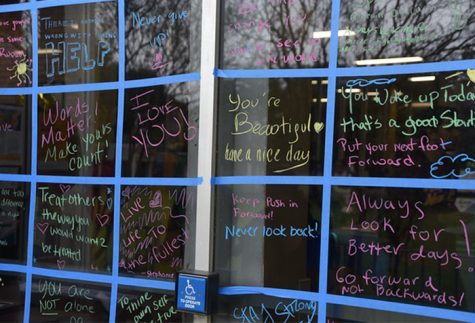 There's
wrong with
HELP
Never give
up!
Words
Matter!
Make yours
Count!
I
Love
YOU!
You're
Beautiful
have a nice day
You woke up Today
that's a good Start
Put your next foot
Forward.
Treat others
the way you
would want 2
be treated
Live
Life To
the Fullest
-Stephanie
Keep Push in
Forward!
Never look back!
Always
Look for
Better days!
Go forward
Not Backwards!
You are
Not alone
PRESS
TO OPERATE
DOOR
To thine
own self
true